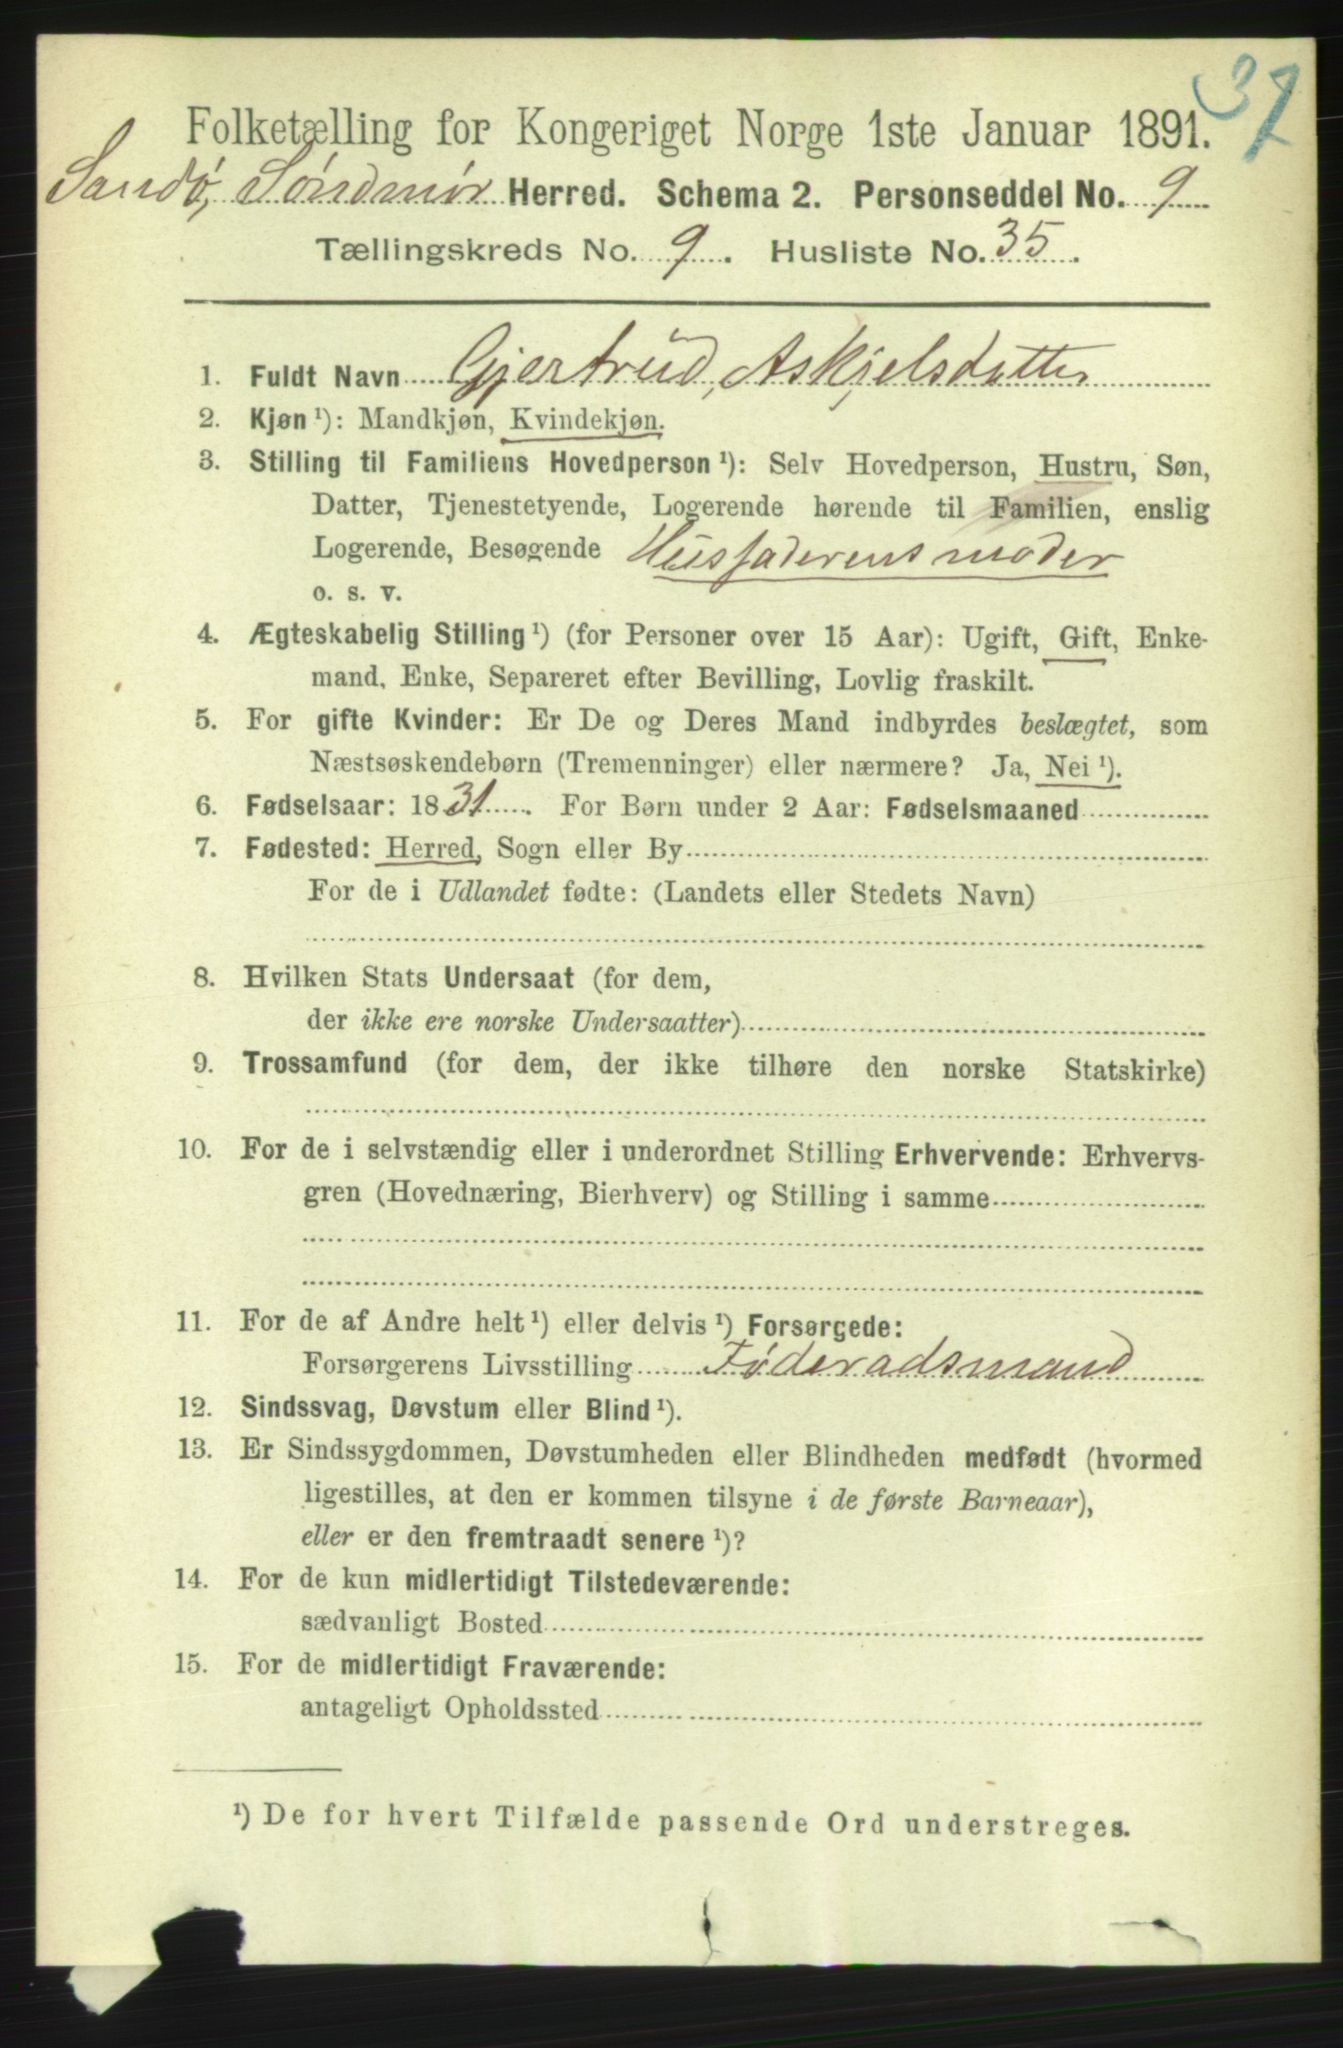 37
Folketælling for Kongeriget Norge 1ste Januar 1891.
Sandø, Søndmør Herred. Schema 2. Personseddel No. 9
Tællingskreds No. 9. Husliste No. 35.
1. Fuldt Navn Gjertrud, Askjelsdatter
2. Kjøn ¹): Mandkjøn, Kvindekjøn.
3. Stilling til Familiens Hovedperson ¹): Selv Hovedperson, Hustru, Søn,
Datter, Tjenestetyende, Logerende hørende til Familien, enslig
Logerende, Besøgende Husfaderens moder
o. s. v.
4. Ægteskabelig Stilling ¹) (for Personer over 15 Aar): Ugift, Gift, Enke-
mand, Enke, Separeret efter Bevilling, Lovlig fraskilt.
5. For gifte Kvinder: Er De og Deres Mand indbyrdes beslægtet, som
Næstsøskendebørn (Tremenninger) eller nærmere? Ja, Nei ¹).
6. Fødselsaar: 1831. For Børn under 2 Aar: Fødselsmaaned
7. Fødested: Herred, Sogn eller By
For de i Udlandet fødte: (Landets eller Stedets Navn)
8. Hvilken Stats Undersaat (for dem,
der ikke ere norske Undersaatter)
9. Trossamfund (for dem, der ikke tilhøre den norske Statskirke)
10. For de i selvstændig eller i underordnet Stilling Erhvervende: Erhvervs-
gren (Hovednæring, Bierhverv) og Stilling i samme
11. For de af Andre helt ¹) eller delvis ¹) Forsørgede:
Forsørgerens Livsstilling Føderadsmand
12. Sindssvag, Døvstum eller Blind ¹).
13. Er Sindssygdommen, Døvstumheden eller Blindheden medfødt (hvormed
ligestilles, at den er kommen tilsyne i de første Barneaar),
eller er den fremtraadt senere ¹)?
14. For de kun midlertidigt Tilstedeværende:
sædvanligt Bosted
15. For de midlertidigt Fraværende:
antageligt Opholdssted
¹) De for hvert Tilfælde passende Ord understreges.